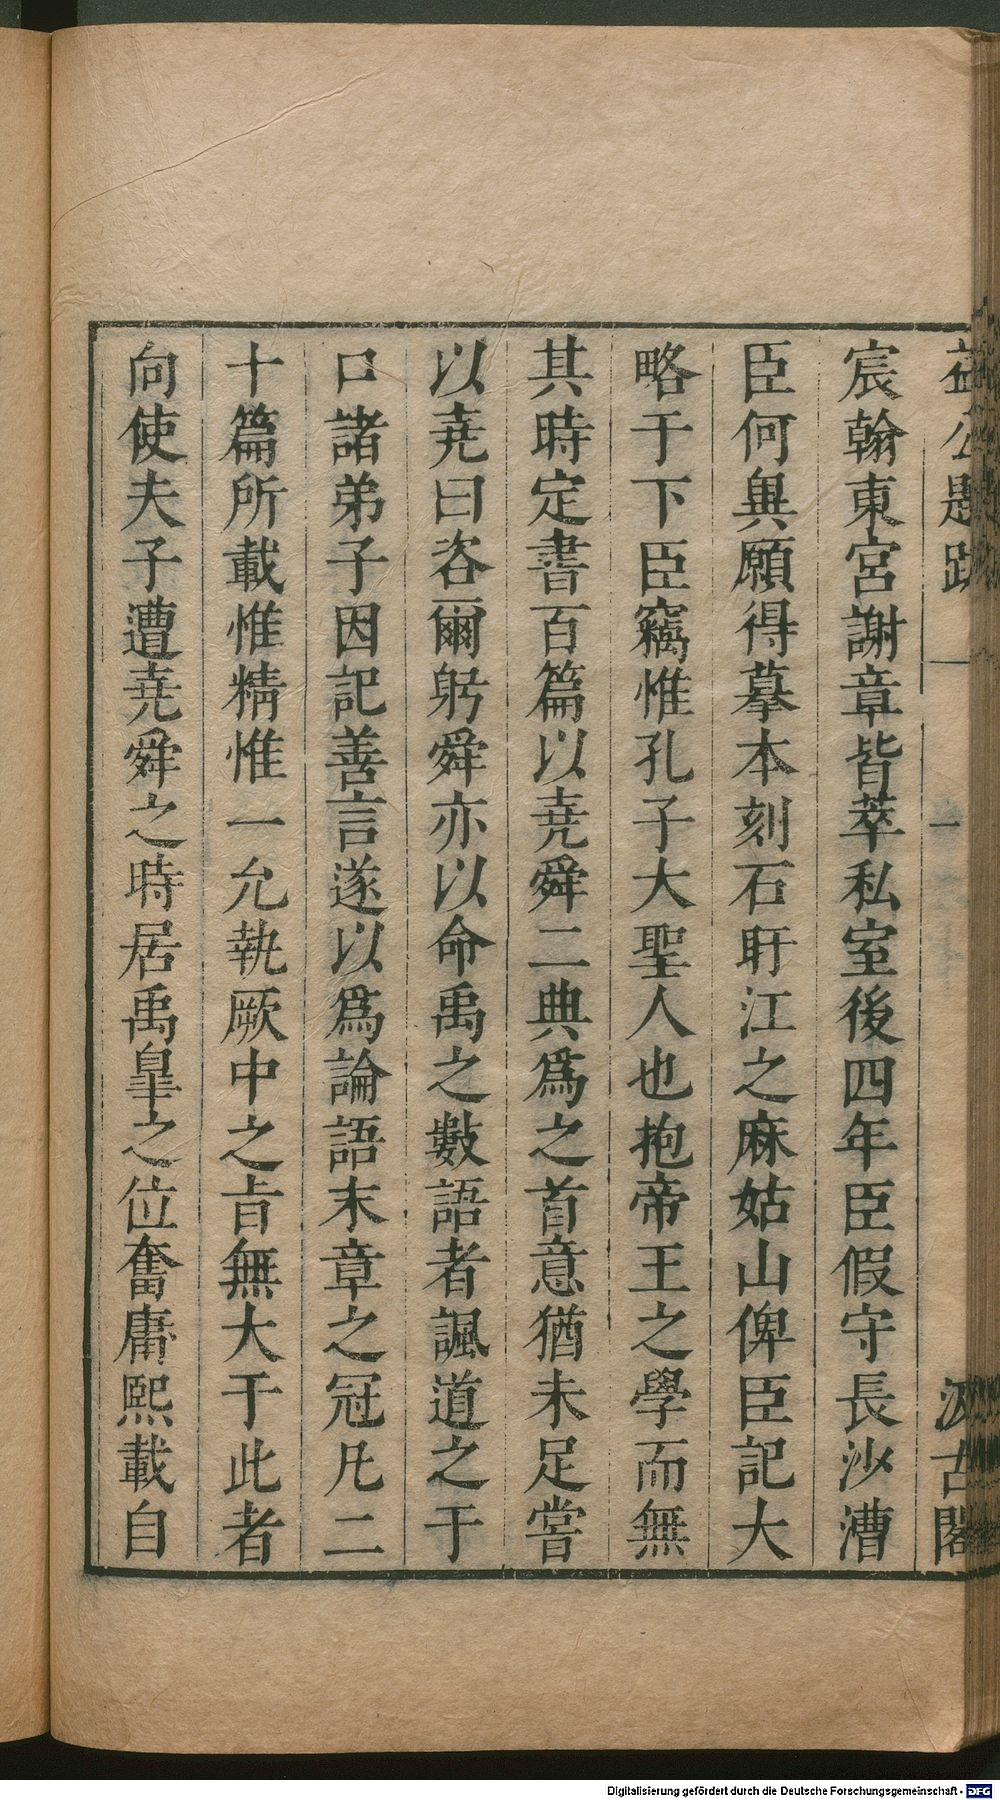 益公題跋 一 一 汲古閣
宸翰東宮謝章皆萃私室後四年臣假守長沙漕
臣何異願得摹本刻石盱江之麻姑山俾臣記大
略于下臣竊惟孔子大聖人也抱帝王之學而無
其時定書百篇以堯舜二典爲之首意猶未足嘗
以堯曰咨爾躬舜亦以命禹之數語者諷道之于
口諸弟子因記善言遂以爲論語末章之冠凡二
十篇所載惟精惟一允執厥中之旨無大于此者
向使夫子遭堯舜之時居禹臯之位奮庸熙載自
Digitalisierung gefördert durch die Deutsche Forschungsgemeinschaft - DFG